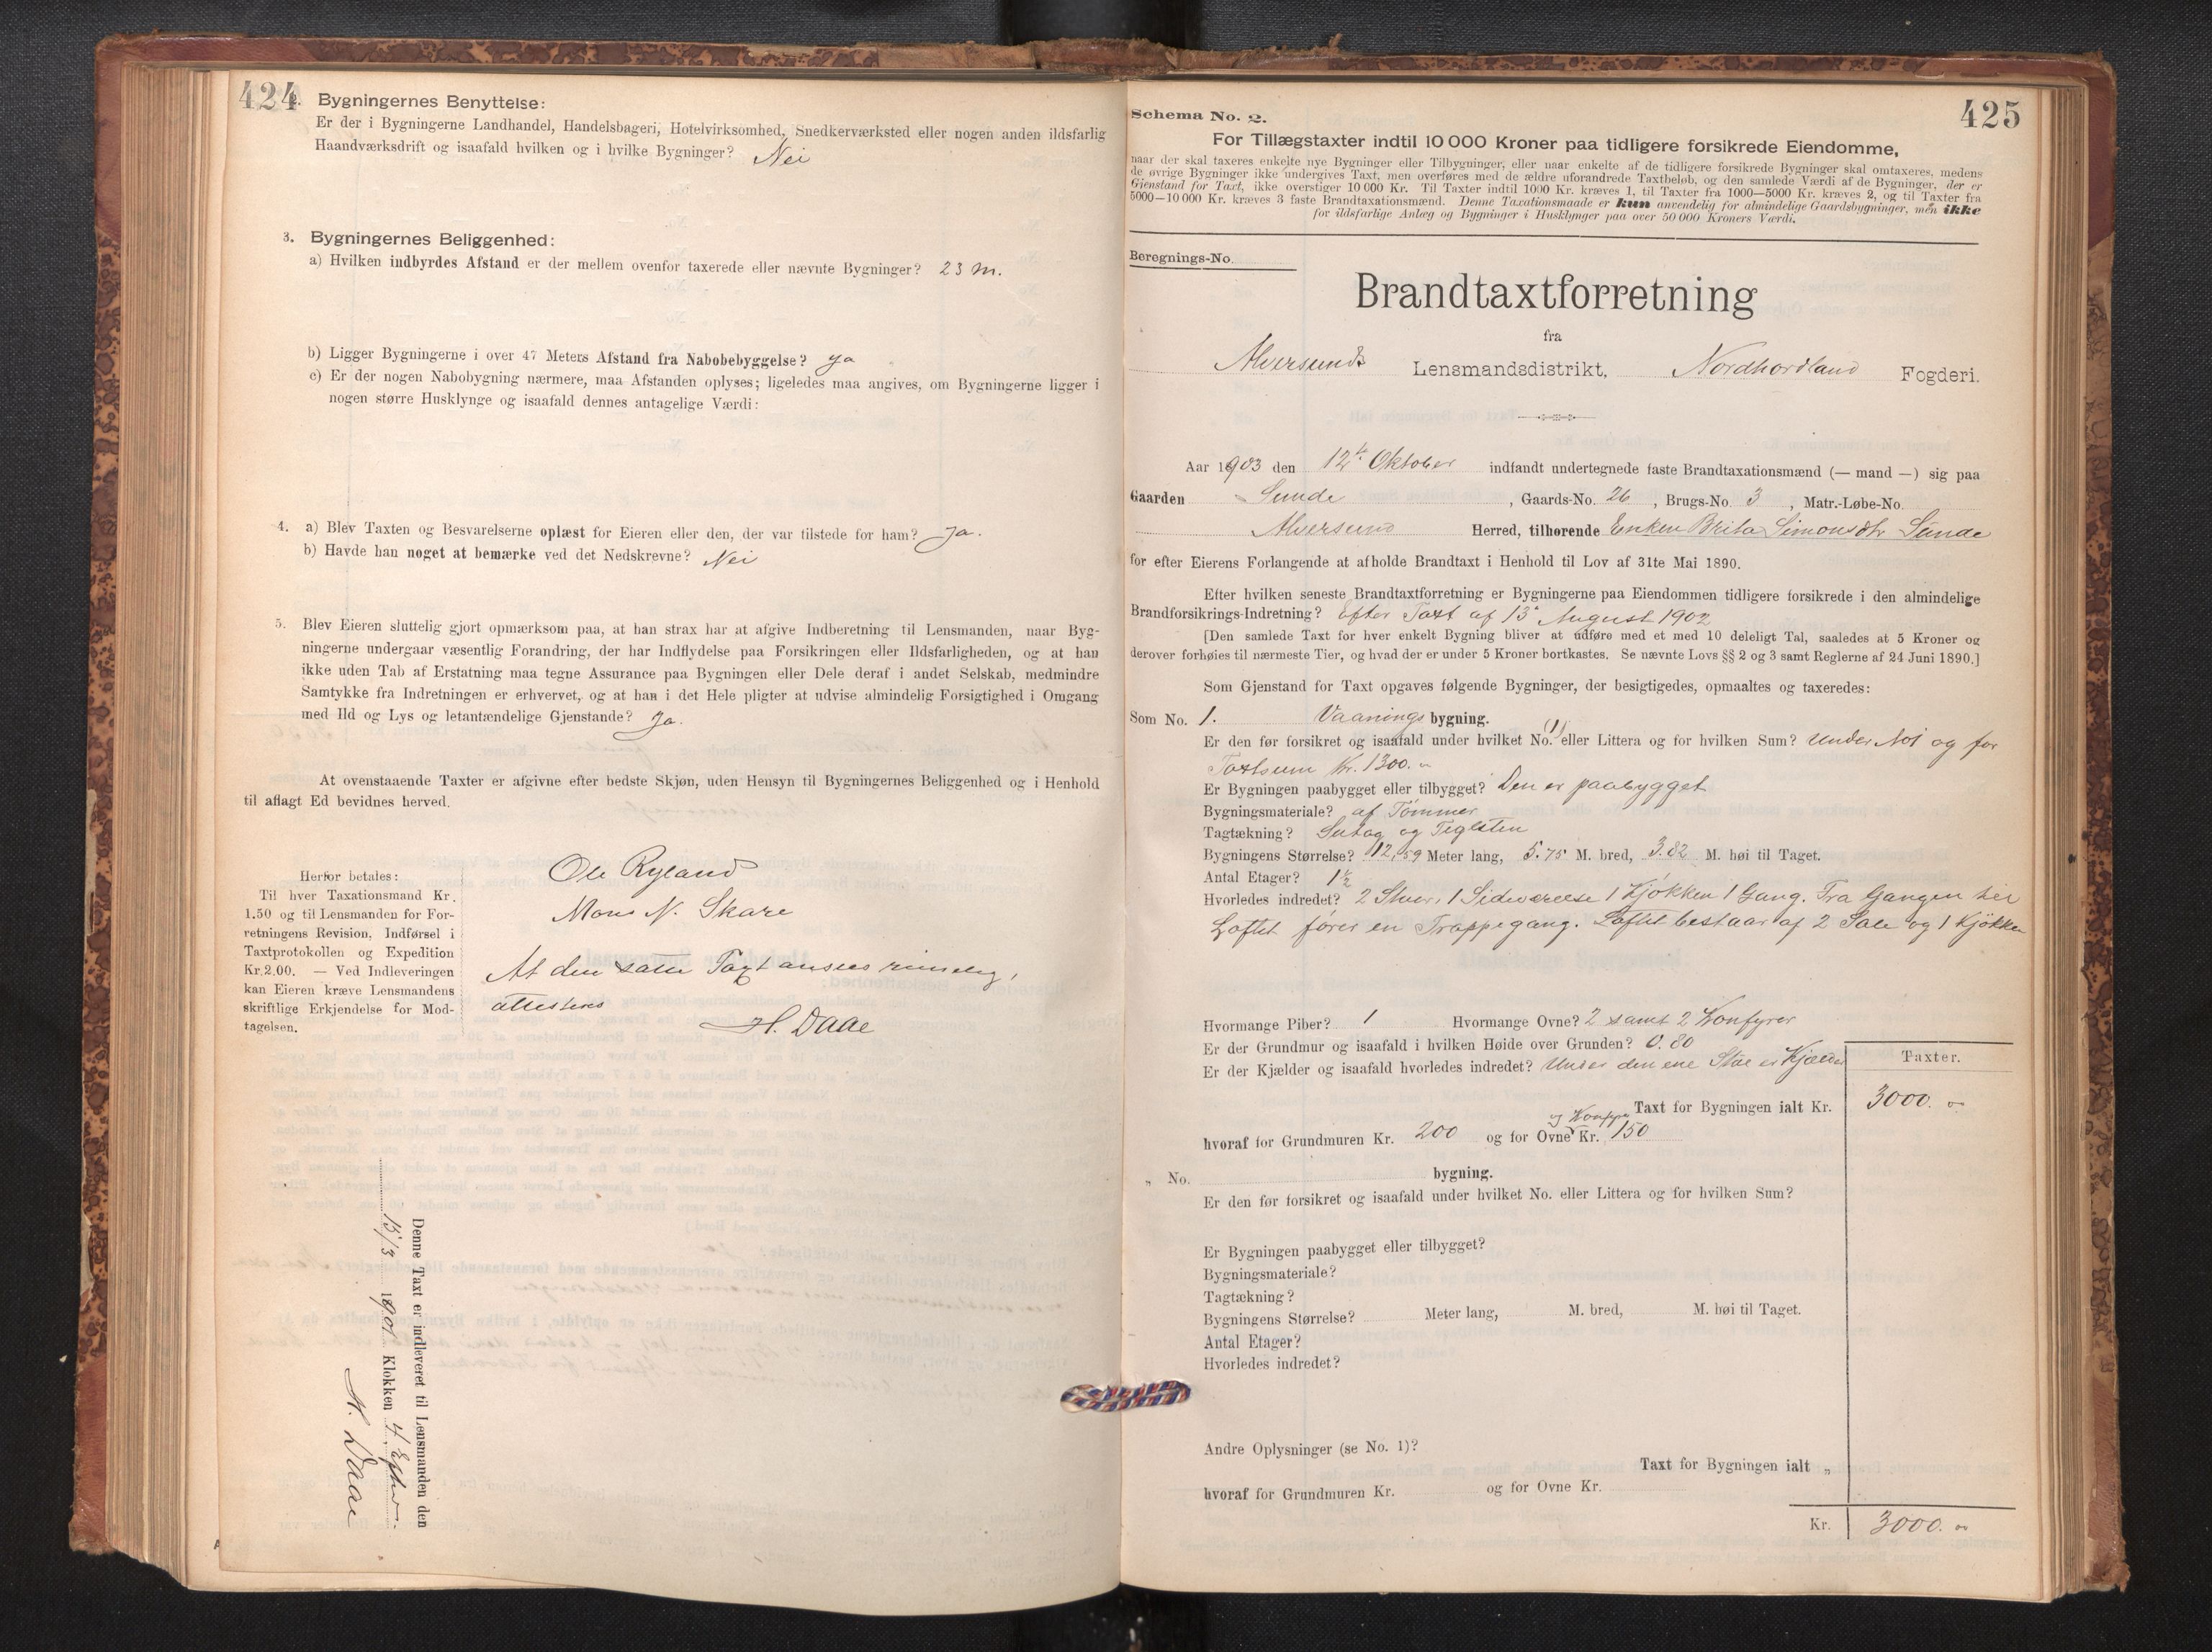 424
Bygningernes Benyttelse:
Er der i Bygningerne Landhandel, Handelsbageri, Hotelvirksomhed, Snedkerværksted eller nogen anden ildsfarlig
Haandværksdrift og isaafald hvilken og i hvilke Bygninger? Nei
3. Bygningernes Beliggenhed:
a) Hvilken indbyrdes Afstand er der mellem ovenfor taxerede eller nævnte Bygninger? 23 m.
b) Ligger Bygningerne i over 47 Meters Afstand fra Nabobebyggelse? ja
c) Er der nogen Nabobygning nærmere, maa Afstanden oplyses; ligeledes maa angives, om Bygningerne ligger i
nogen større Husklynge og isaafald dennes antagelige Værdi:
4. a) Blev Taxten og Besvarelserne oplæst for Eieren eller den, der var tilstede for ham? Ja.
b) Havde han noget at bemærke ved det Nedskrevne? Nei
5. Blev Eieren sluttelig gjort opmærksom paa, at han strax har at afgive Indberetning til Lensmanden, naar Byg-
ningerne undergaar væsentlig Forandring, der har Indflydelse paa Forsikringen eller Ildsfarligheden, og at han
ikke uden Tab af Erstatning maa tegne Assurance paa Bygningen eller Dele deraf i andet Selskab, medmindre
Samtykke fra Indretningen er erhvervet, og at han i det Hele pligter at udvise almindelig Forsigtighed i Omgang
med Ild og Lys og letantændelige Gjenstande? Ja.
At ovenstaaende Taxter er afgivne efter bedste Skjøn, uden Hensyn til Bygningernes Beliggenhed og i Henhold
til aflagt Ed bevidnes herved.
Herfor betales:
Til hver Taxationsmand Kr.
1.50 og til Lensmanden for For-
retningens Revision, Indførsel i
Taxtprotokollen og Expedition
Kr. 2.00. — Ved Indleveringen
kan Eieren kræve Lensmandens
skriftlige Erkjendelse for Mod-
tagelsen.
Ole Ryland
Mons N. Skare
At den satte Taxt ansees rimelig,
attesteres
H. Daae
Denne Taxt er indleveret til Lensmanden den
15/3 1901 Klokken 4 Efter.
H. Daae
425
Schema No. 2.
For Tillægstaxter indtil 10 000 Kroner paa tidligere forsikrede Eiendomme,
naar der skal taxeres enkelte nye Bygninger eller Tilbygninger, eller naar enkelte af de tidligere forsikrede Bygninger skal omtaxeres, medens
de øvrige Bygninger ikke undergives Taxt, men overføres med de ældre uforandrede Taxtbeløb, og den samlede Værdi af de Bygninger, der er
Gienstand for Taxt, ikke overstiger 10 000 Kr. Til Taxter indtil 1000 Kr. kræves 1, til Taxter fra 1000—5000 Kr. kræves 2, og til Taxter fra
5000—10 000 Kr. kræves 3 faste Brandtaxationsmænd. Denne Taxationsmaade er kun anvendelig for almindelige Gaardsbygninger, men ikke
for ildsfarlige Anlæg og Bygninger i Husklynger paa over 50 000 Kroners Værdi.
Beregnings-No.
Brandtaxtforretning
fra
Alversunds Lensmandsdistrikt, Nordhordland Fogderi.
Aar 1903 den 12te Oktober indfandt undertegnede faste Brandtaxationsmænd (— mand —) sig paa
Gaarden Sunde, Gaards-No. 26, Brugs-No. 3, Matr.-Løbe-No.
Alversund Herred, tilhørende Enken Brita Simonsdtr Sunde
for efter Eierens Forlangende at afholde Brandtaxt i Henhold til Lov af 31te Mai 1890.
Efter hvilken seneste Brandtaxtforretning er Bygningerne paa Eiendommen tidligere forsikrede i den almindelige
Brandforsikrings-Indretning? Efter Taxt af 13 August 1902
[Den samlede Taxt for hver enkelt Bygning bliver at udføre med et med 10 deleligt Tal, saaledes at 5 Kroner og
derover forhøies til nærmeste Tier, og hvad der er under 5 Kroner bortkastes. Se nævnte Lovs §§ 2 og 3 samt Reglerne af 24 Juni 1890.]
Som Gjenstand for Taxt opgaves følgende Bygninger, der besigtigedes, opmaaltes og taxeredes:
Som No. 1. Vaaningsbygning.
Er den før forsikret og isaafald under hvilket No. (1) eller Littera og for hvilken Sum? Under No 1 og for
Taxtsum Kr. 1300.
Er Bygningen paabygget eller tilbygget? Den er paabygget
Bygningsmateriale? af Tømmer
Tagtækning? Sutag og Teglsten
Bygningens Størrelse? 12,59 Meter lang, 5.75 M. bred, 3.82 M. høi til Taget.
Antal Etager? 1½
Hvorledes indredet? 2 Stuer, 1 Sideværelse 1 Kjøkken 1 Gang. Fra Gangen til
Loftet fører en Trappegang. Loftet bestaar af 2 Sale og 1 Kjøkken
Hvormange Piber? 1 Hvormange Ovne? 2 samt 2 Komfyrer
Er der Grundmur og isaafald i hvilken Høide over Grunden? 0.80
Er der Kjælder og isaafald hvorledes indredet? Under den ene Stue er Kjælder
Taxter.
Taxt for Bygningen ialt Kr. 3000.
hvoraf for Grundmuren Kr. 200 og for Ovne og Komfyr Kr. 150
„ No. bygning.
Er den før forsikret og isaafald under hvilket No. eller Littera og for hvilken Sum?
Er Bygningen paabygget eller tilbygget?
Bygningsmateriale?
Tagtækning?
Bygningens Størrelse? Meter lang, M. bred, M. høi til Taget.
Antal Etager?
Hvorledes indredet?
Andre Oplysninger (se No. 1)?
Taxt for Bygningen ialt „
hvoraf for Grundmuren Kr. og for Ovne Kr.
Kr. 3000.